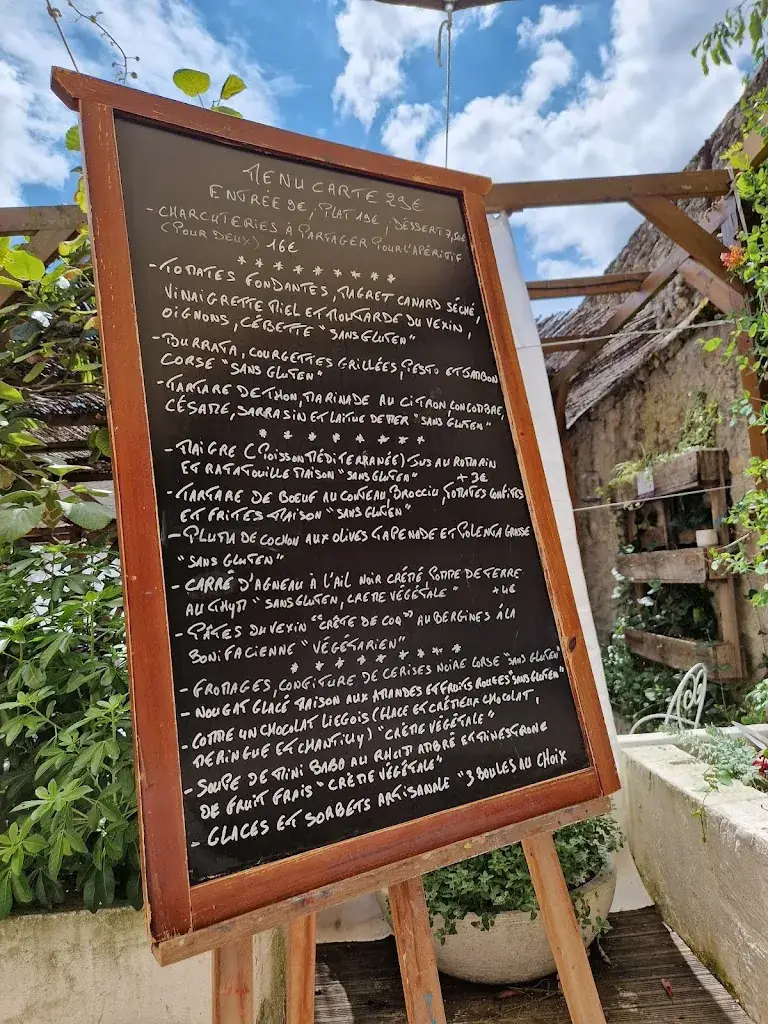 MENU CARTE 29€
ENTREE 9€, PLAT 19€, DESSERT 7,50€
-CHARCUTERIES À PARTAGER POUR L'APÉRITIF
(POUR DEUX) 16€
* * * * * * * * *
-TOMATES FONDANTES, MAGRET CANARD SÉCHÉ,
VINAIGRETTE MIEL ET MOUTARDE DU VEXIN,
OIGNONS, CÉBETTE "SANS GLUTEN"
-BURRATA, COURGETTES GRILLÉES, PESTO ET JAMBON
CORSE "SANS GLUTEN"
-TARTARE DE THON, MARINADE AU CITRON, CONCOMBRE,
CÉSAME, SARRASIN ET LAITUE DE MER "SANS GLUTEN"
* * * * * * * *
-MAIGRE (POISSON MÉDITERRANÉE) JUS AU ROMARIN
ET RATATOUILLE MAISON "SANS GLUTEN" +3€
-TARTARE DE BOEUF AU COUTEAU, BROCCIU, TOMATES CONFITES
ET FRITES MAISON "SANS GLUTEN"
-PLUMA DE COCHON AUX OLIVES TAPENADE ET POLENTA GRASSE
"SANS GLUTEN"
- CARRÉ D'AGNEAU À L'AIL NOIR CRÉMÉ POMME DE TERRE
AU THYM "SANS GLUTEN, CREME VÉGÉTALE" +4€
- PÂTES DU VEXIN "CRÊTE DE COQ" AUBERGINES À LA
BONIFACIENNE "VÉGÉTARIEN"
* * * * * * * *
- FROMAGES, CONFITURE DE CERISES NOIRE CORSE "SANS GLUTEN"
- NOUGAT GLACÉ MAISON AUX AMANDES ET FRUITS ROUGES "SANS GLUTEN"
- COMME UN CHOCOLAT LIEGOIS (GLACE ET CRÉMEUX CHOCOLAT,
MERINGUE ET CHANTILLY) "CRÈME VÉGÉTALE"
- SOUPE DE MINI BABA AU RHUM AMBRÉ ET MINESTRONE
DE FRUIT FRAIS "CRÈME VÉGÉTALE"
- GLACES ET SORBETS ARTISANALE "3 BOULES AU CHOIX